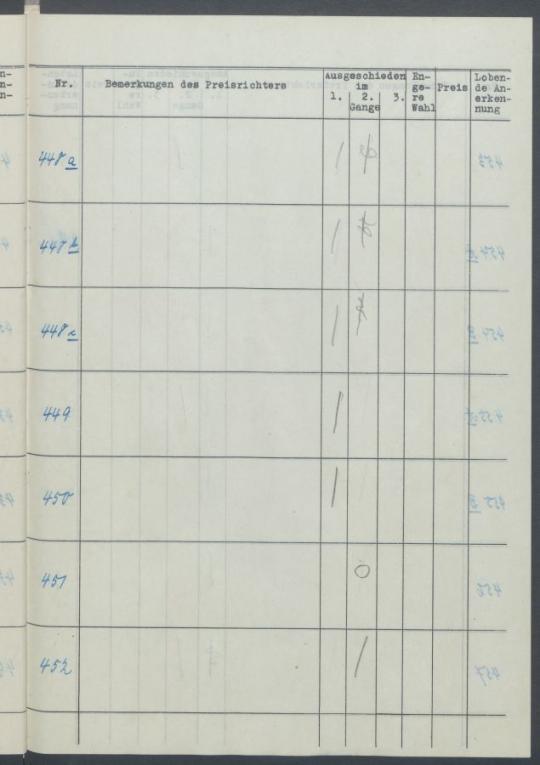 Nr. Bemerkungen des Preisrichters Ausgeschieden im 1. 2. 3. Gange En-ge-re Wahl Preis Loben-de An-erken-nung
448 a /
448 b /
448 c /
449 /
450 /
451 O
452 /